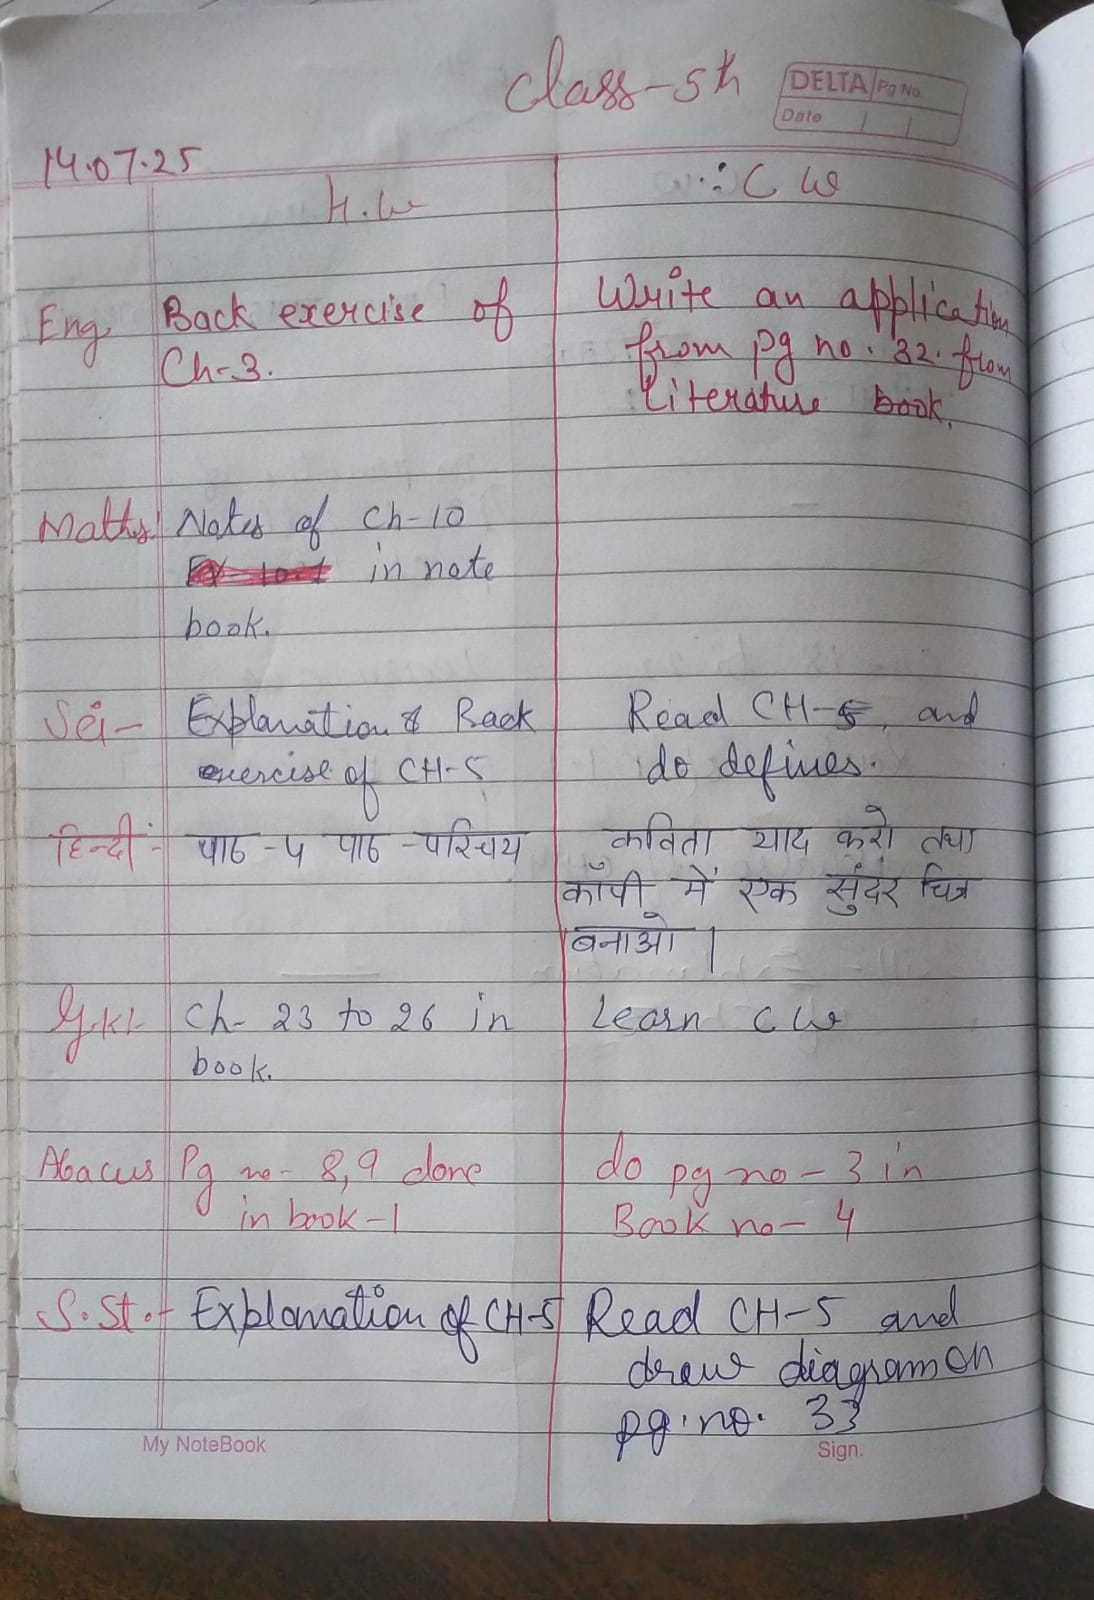 Class-5th
DELTA Pg No.
Date / /
14.07.25
H.W
C W
Eng. Back exercise of
Ch-3.
Write an application
from pg no. 32. from
Literature book.
Maths: Notes of Ch-10
in note
book.
Sci- Explanation & Back
exercise of CH-5
Read CH-5, and
do defines.
हिन्दी:- पाठ -५ पाठ -परिचय
कविता याद करो तथा
कॉपी में एक सुंदर चित्र
बनाओ |
G.K- Ch- 23 to 26 in
book.
Learn C W
Abacus Pg no- 8,9 done
in book-1
do pg no- 3 in
Book no- 4
S.St.- Explanation of CH-5
Read CH-5 and
draw diagram on
pg. no. 33
My NoteBook
Sign.